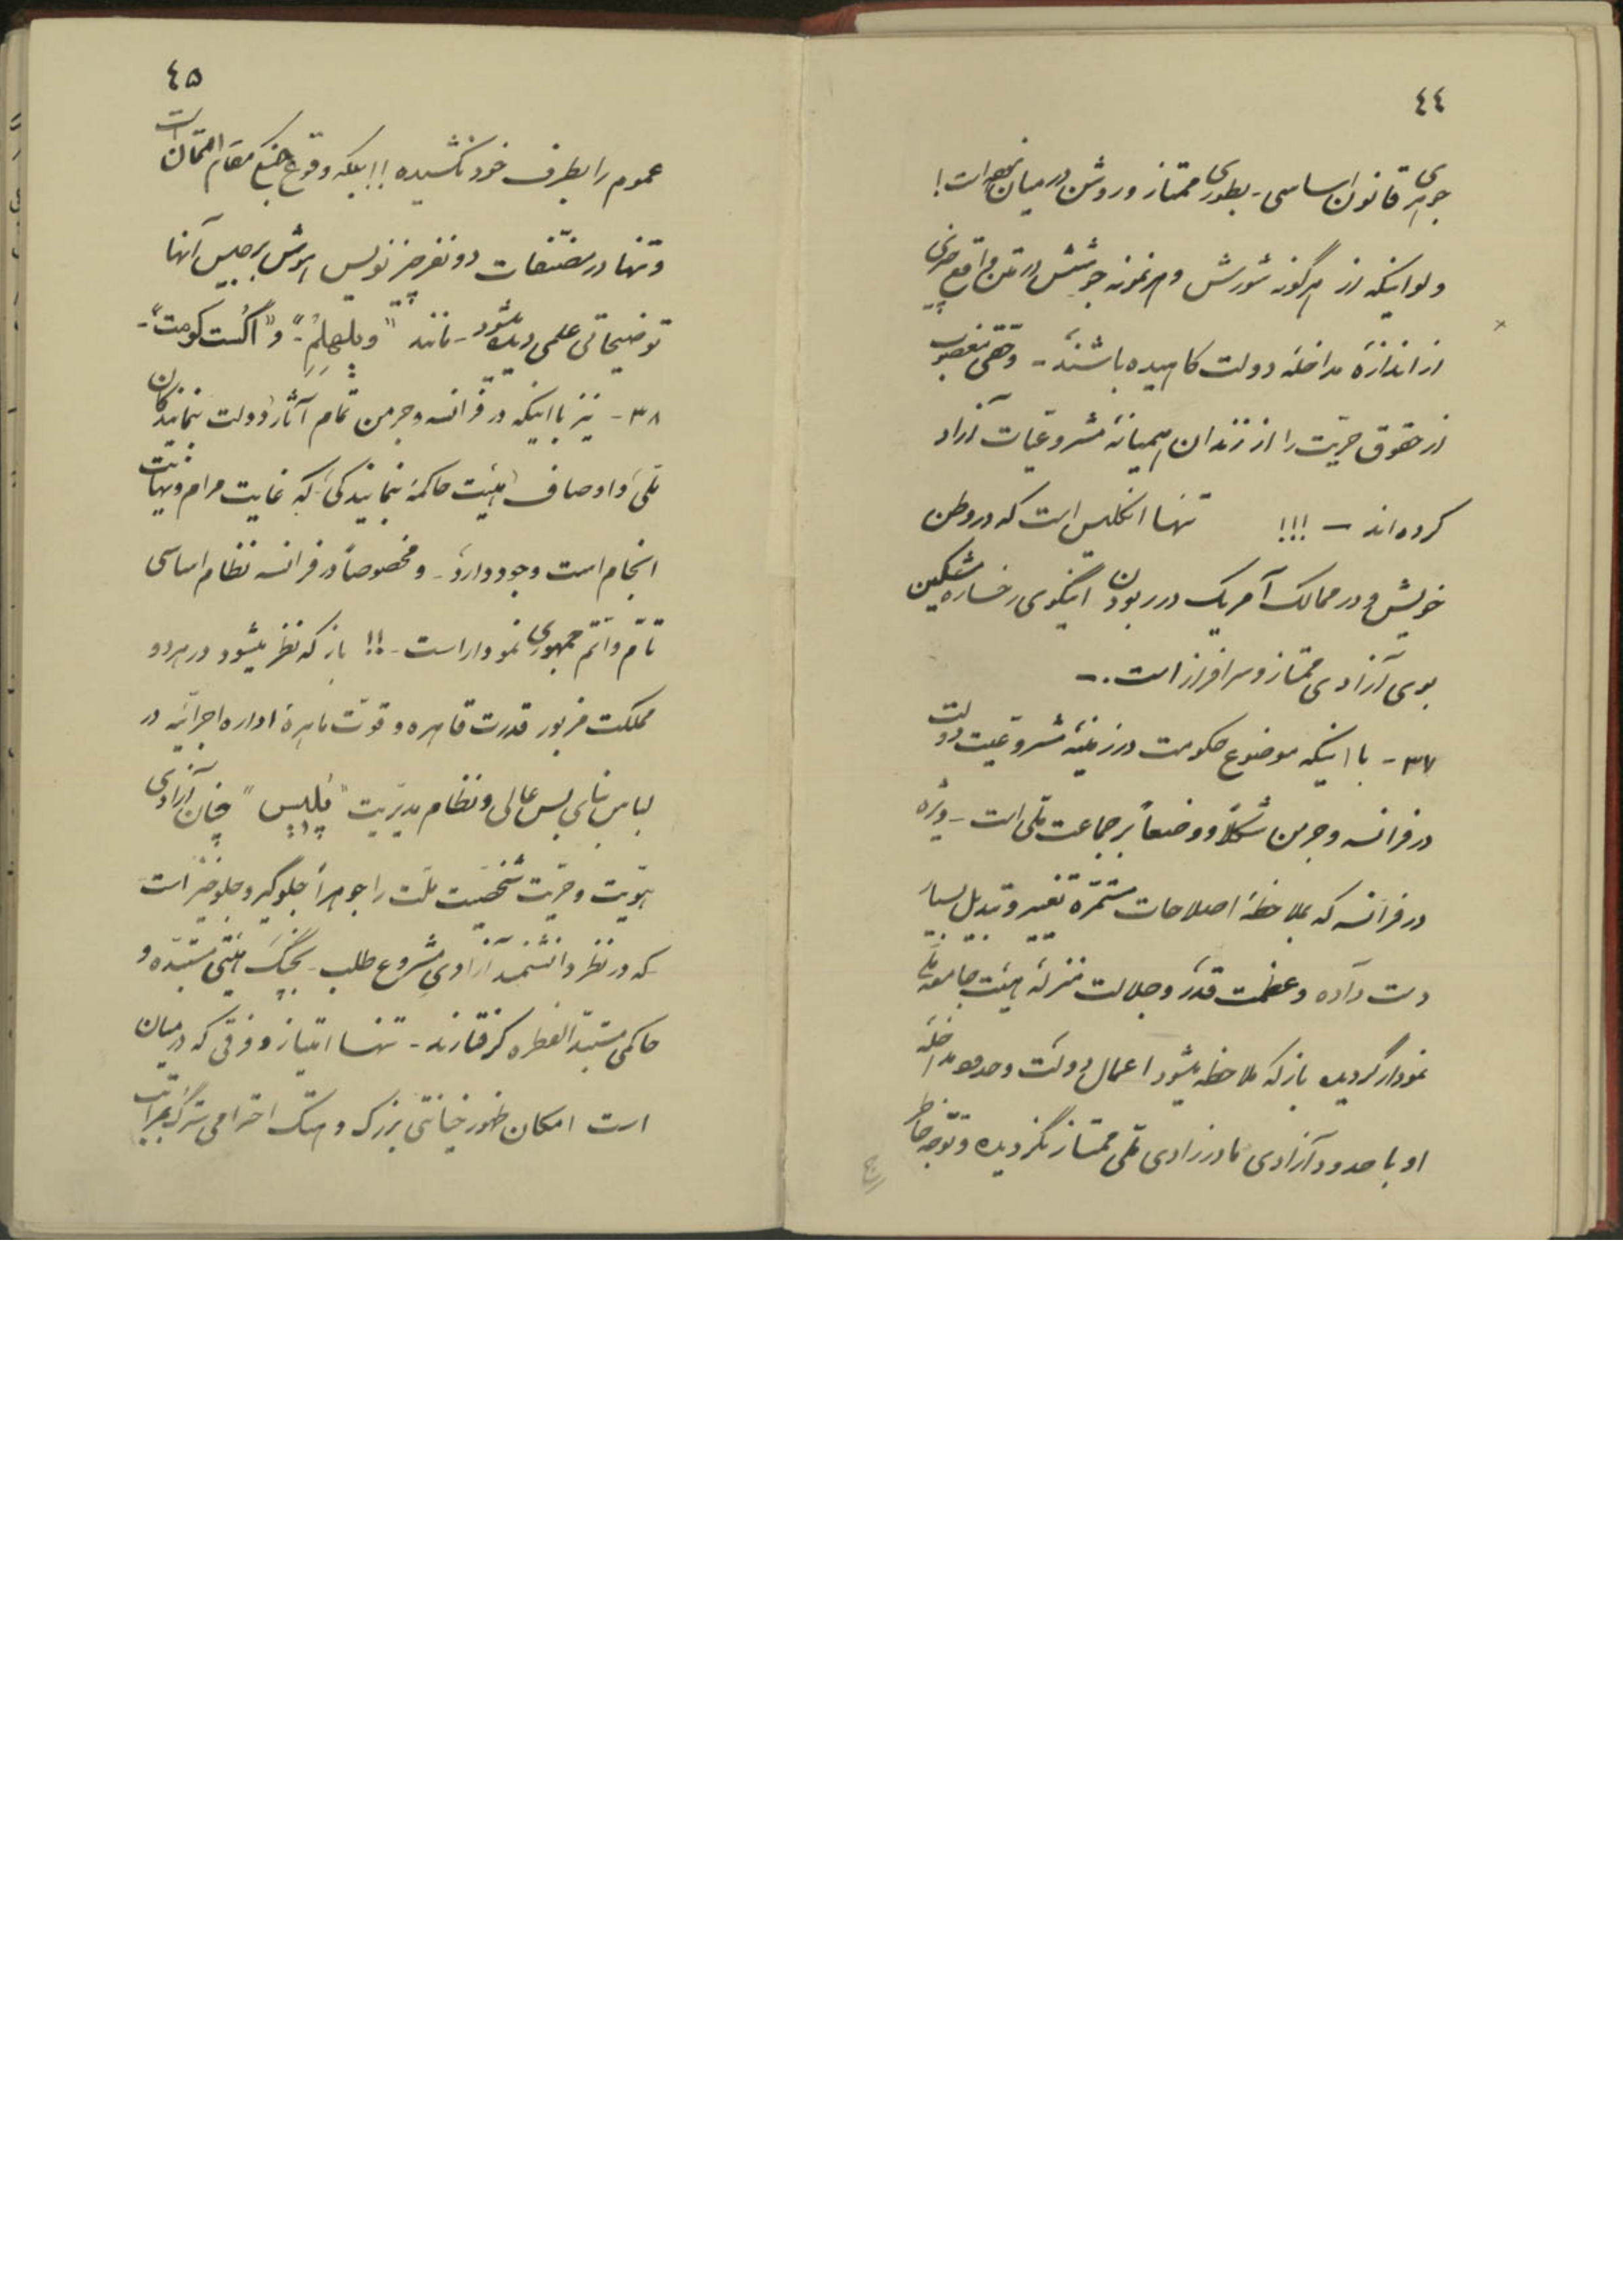 ٤٤
جوهری قانون اساسی - بطوری ممتاز و روشن در میان نبوده است !
ولو اینکه از هرگونه شورش و هر نمونه جوشش در متن واقع چیزی
از اندازهٔ مداخلهٔ دولت کاهیده باشند - وجهی مغصوب
از حقوق حرّیت را از زندان همیانهٔ مشروعیات آزاد
کرده‌اند — !!! تنها انگلیس است که در وطن
خویش و در ممالک آمریک در ربودن اینگوی رخساره مشکین
بوی آزادی ممتاز و سرافراز است .—
۳۷ - با اینکه موضوع حکومت در زمینهٔ مشروعیت دولت
در فرانسه و جرمن شکلاً و وضعاً بر جماعت ملّی است - ویژه
در فرانسه که بملاحظهٔ اصلاحات مستمّره تغییر و تبدیل بسیار
دست داده و عظمت قدر و جلالت منزلهٔ هیئت جامعهٔ ملّی
نمودار گردیده باز که ملاحظه میشود اعمال دولت و حدود مداخلهٔ
او با حدود آزادی مادرزادی ملّی ممتاز نگردیده و توجه خاطر
٤٥
عموم را بطرف خود نکشیده !! بلکه وقوع جنبع مقام امتحان است
و تنها در مصنّفات دو نفر چیزنویس هوش برجیس آنها
توضیحاتی علمی دیده میشود - مانند "ویلهلم" و "اگست کومت" -
۳۸ - نیز با اینکه در فرانسه و جرمن تمام آثار دولت نمایندگان
ملّی و اوصاف هیئت حاکمهٔ نمایندگی که غایت مرام و نهایت
انجام است وجود دارد - و مخصوصاً در فرانسه نظام اساسی
تامّ و اتمّ جمهوری نمودار است - !! باز که نظر میشود در هر دو
مملکت مزبور قدرت قاهره و قوّت ماهرهٔ اداره اجرائیه در
لباس بنای بس عالی و نظام مدیریت "پلیس" چنان آزادی
هوّیت و حرّیت شخصیت ملّت را جوهراً جلوگیر و جلو خیز است
که در نظر دانشمند آزادی مشروع طلب - بچنگ هیئتی مستبدّه و
حاکمی مستبدّ الفطره گرفتارند - تنها امتیاز و فرقی که در میان
است امکان ظهور خیانتی بزرگ و هتک احترامی سترگ بمراتب